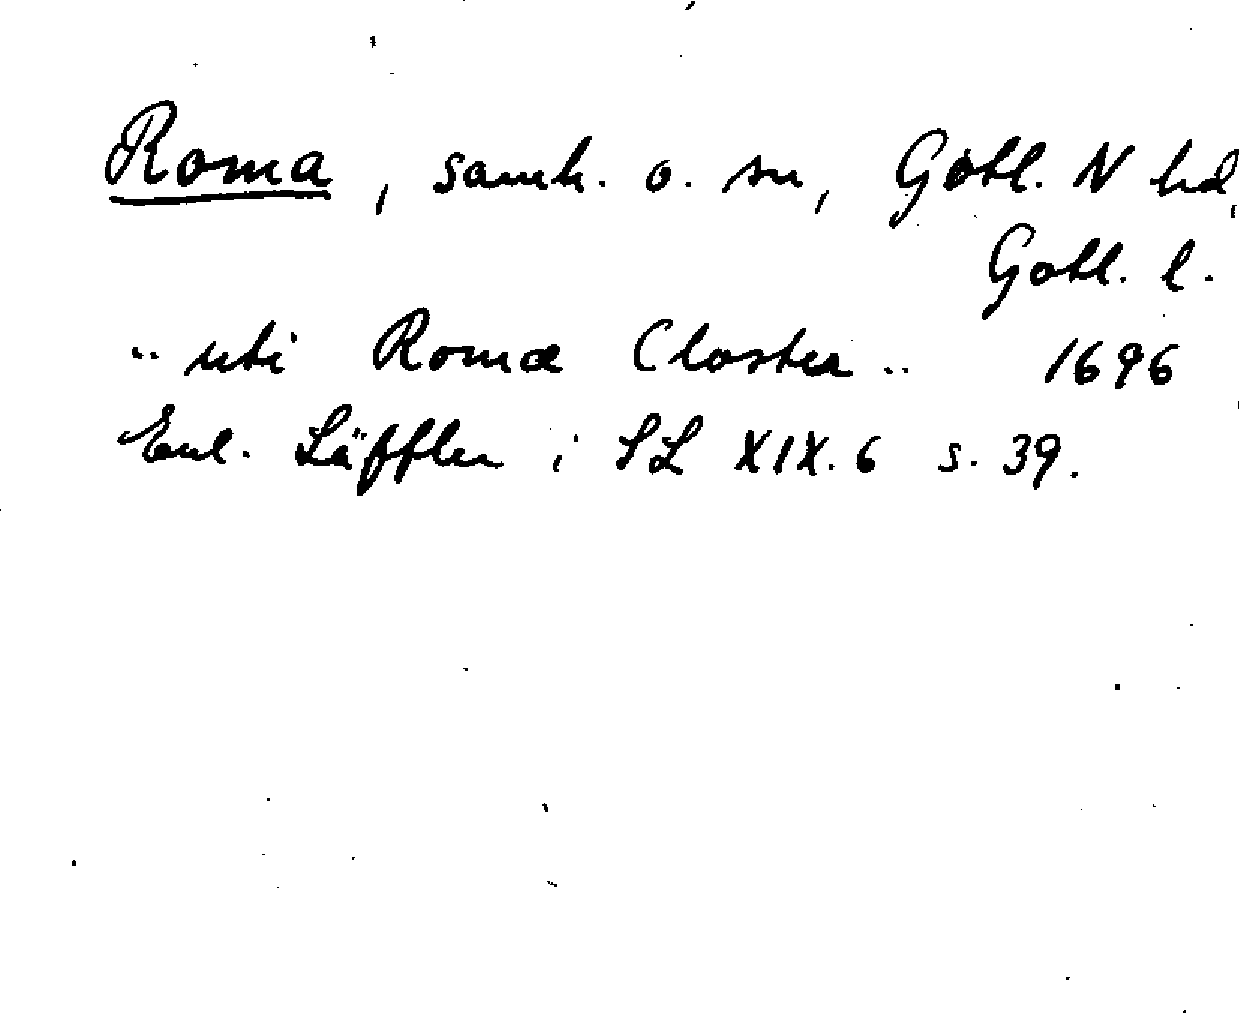 Roma, samh. o. sn, Gotl. N hd,
Gotl. l.
.. uti Roma Closter .. 1696
Enl. Läffler i SL XIX.6 s. 39.